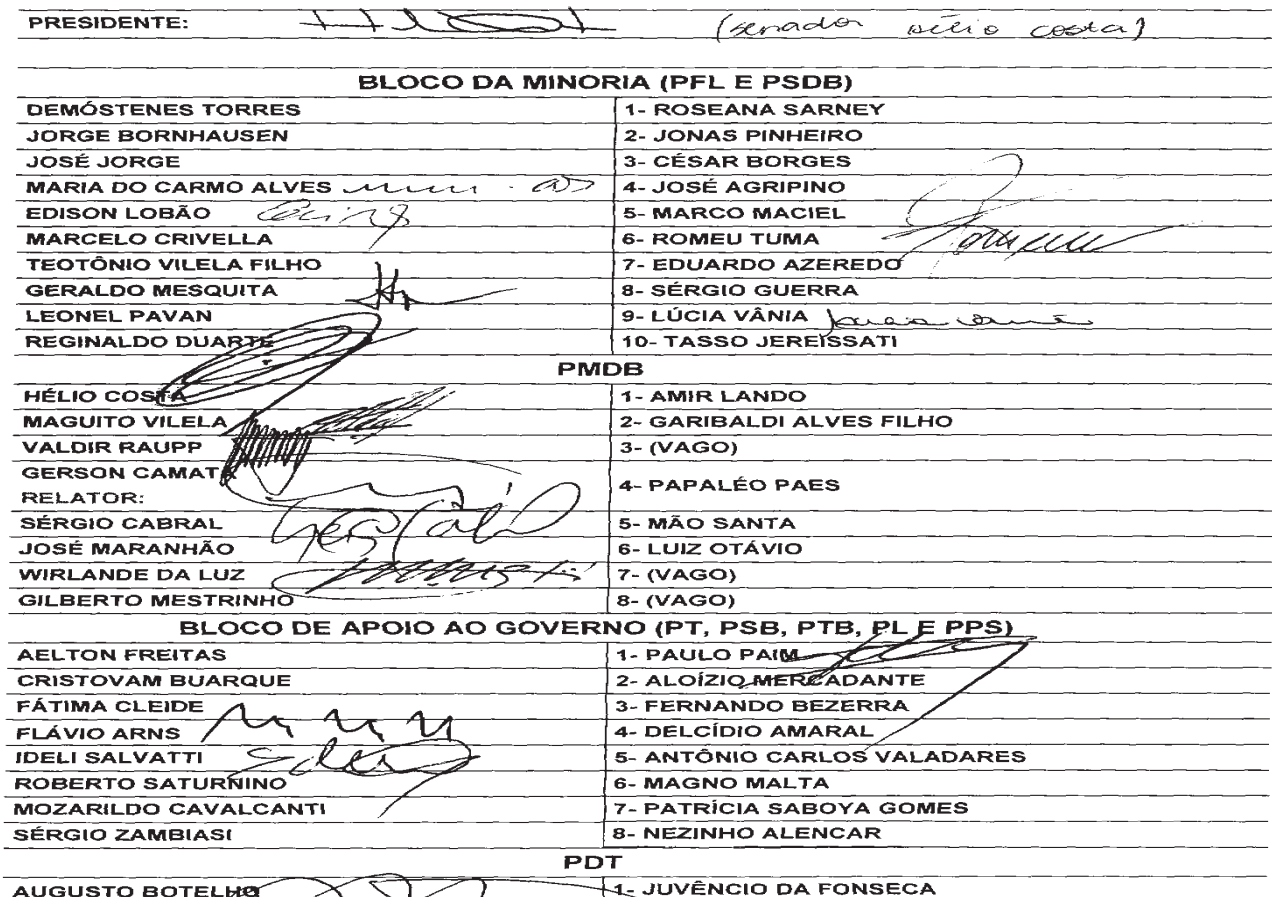 PRESIDENTE: (senador Hélio costa)
BLOCO DA MINORIA (PFL E PSDB)
DEMÓSTENES TORRES 1- ROSEANA SARNEY
JORGE BORNHAUSEN 2- JONAS PINHEIRO
JOSÉ JORGE 3- CÉSAR BORGES
MARIA DO CARMO ALVES 4- JOSÉ AGRIPINO
EDISON LOBÃO 5- MARCO MACIEL
MARCELO CRIVELLA 6- ROMEU TUMA
TEOTÔNIO VILELA FILHO 7- EDUARDO AZEREDO
GERALDO MESQUITA 8- SÉRGIO GUERRA
LEONEL PAVAN 9- LÚCIA VÂNIA
REGINALDO DUARTE 10- TASSO JEREISSATI
PMDB
HÉLIO COSTA 1- AMIR LANDO
MAGUITO VILELA 2- GARIBALDI ALVES FILHO
VALDIR RAUPP 3- (VAGO)
GERSON CAMATA
RELATOR: 4- PAPALÉO PAES
SÉRGIO CABRAL 5- MÃO SANTA
JOSÉ MARANHÃO 6- LUIZ OTÁVIO
WIRLANDE DA LUZ 7- (VAGO)
GILBERTO MESTRINHO 8- (VAGO)
BLOCO DE APOIO AO GOVERNO (PT, PSB, PTB, PL E PPS)
AELTON FREITAS 1- PAULO PAIM
CRISTOVAM BUARQUE 2- ALOÍZIO MERCADANTE
FÁTIMA CLEIDE 3- FERNANDO BEZERRA
FLÁVIO ARNS 4- DELCÍDIO AMARAL
IDELI SALVATTI 5- ANTÔNIO CARLOS VALADARES
ROBERTO SATURNINO 6- MAGNO MALTA
MOZARILDO CAVALCANTI 7- PATRÍCIA SABOYA GOMES
SÉRGIO ZAMBIASI 8- NEZINHO ALENCAR
PDT
AUGUSTO BOTELHO 1- JUVÊNCIO DA FONSECA